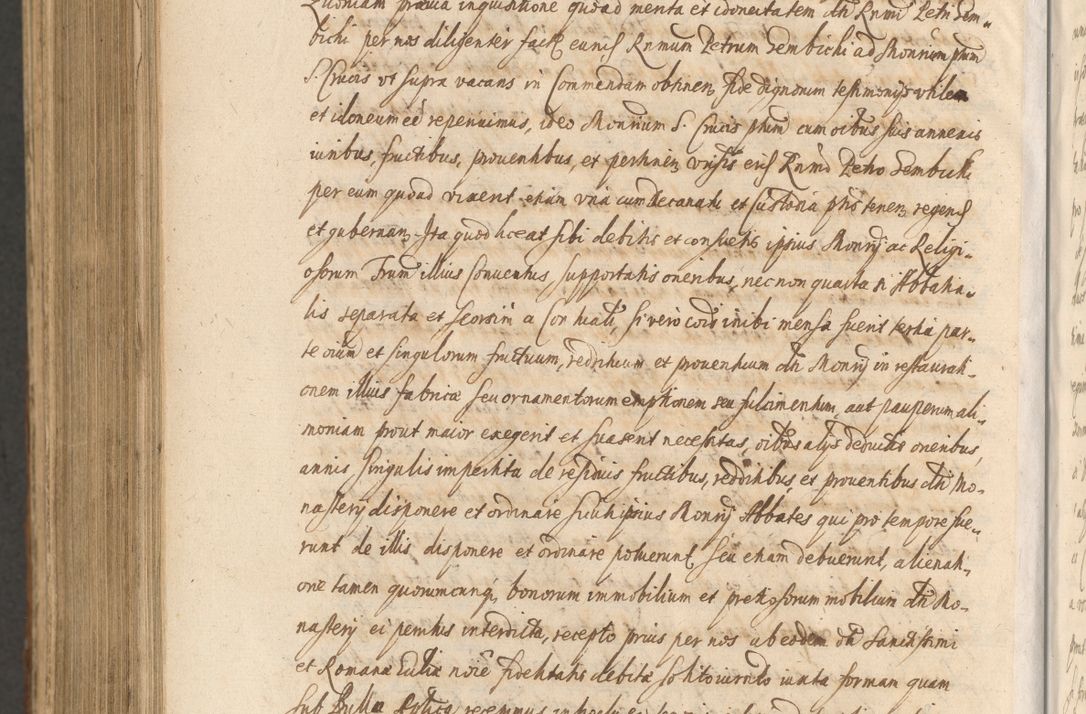 Quoniam prævia inquisitione quoad menta et idoneitatem dti Rnmi Petri Gem-
bichi per nos diligenter fact eund Rnmum Petrum Gembichi ad Monrium phum
S. Crucis ut supra vacans in Commendam obtinen, fide dignorum testimonijs utilem
et idoneum eé reperuimus, ideo Monrium S. Crucis phum cum oibus suis annexis
iuribus, fructibus, proventibus, et pertinen, vnisis eid Rnmo Petro Gembichi
per eum quoad vixerit etiam vna cum Decanatu et Custodia phis tenen, regend
et gubernan, Ita quod liceat sibi debitis et consuetis ipsius Monrij ac Religi-
osorum Frum illius Conventus, supportatis oneribus, necnon quarta si Abbatia-
lis separata et seorsim a Conventuali, si vero cois inibi mensa fuerit tertia par-
te oium et singulorum fructuum, reddituum et proventuum dti Monrij in restaurati-
onem illius fabricæ seu ornamentorum emptionem seu fulcimentum, aut pauperum ali-
moniam prout maior exegerit et suaserit necessitas, oibus alijs deductis oneribus,
annis singulis impertita de residuis fructibus, redditibus, et proventibus dti Mo-
nasterij disponere et ordinare sicuti ipsius Monrij Abbates qui pro tempore fue-
runt de illis, disponere et ordinare potuerunt, seu etiam debuerunt, alienati-
one tamen quorumcunq, bonorum immobilium et pretiosorum mobilium dti Mo-
nasterij ei penitus interdicta, recepto prius per nos ab eodem dti Sanctissimi
et Romanæ Eccliæ noie fidelitatis debitæ solito iuramento iuxta formam quam
sub Bulla